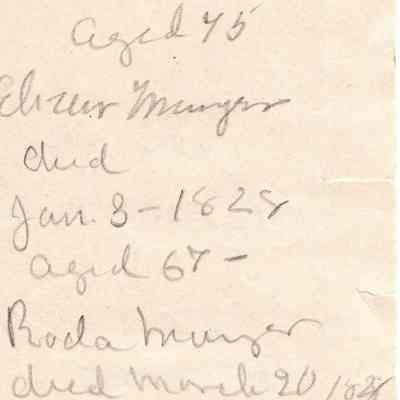 aged 45
Munger
died
Jan. 3 - 1828
aged 67 -
Roda Munger
died March 20 1828